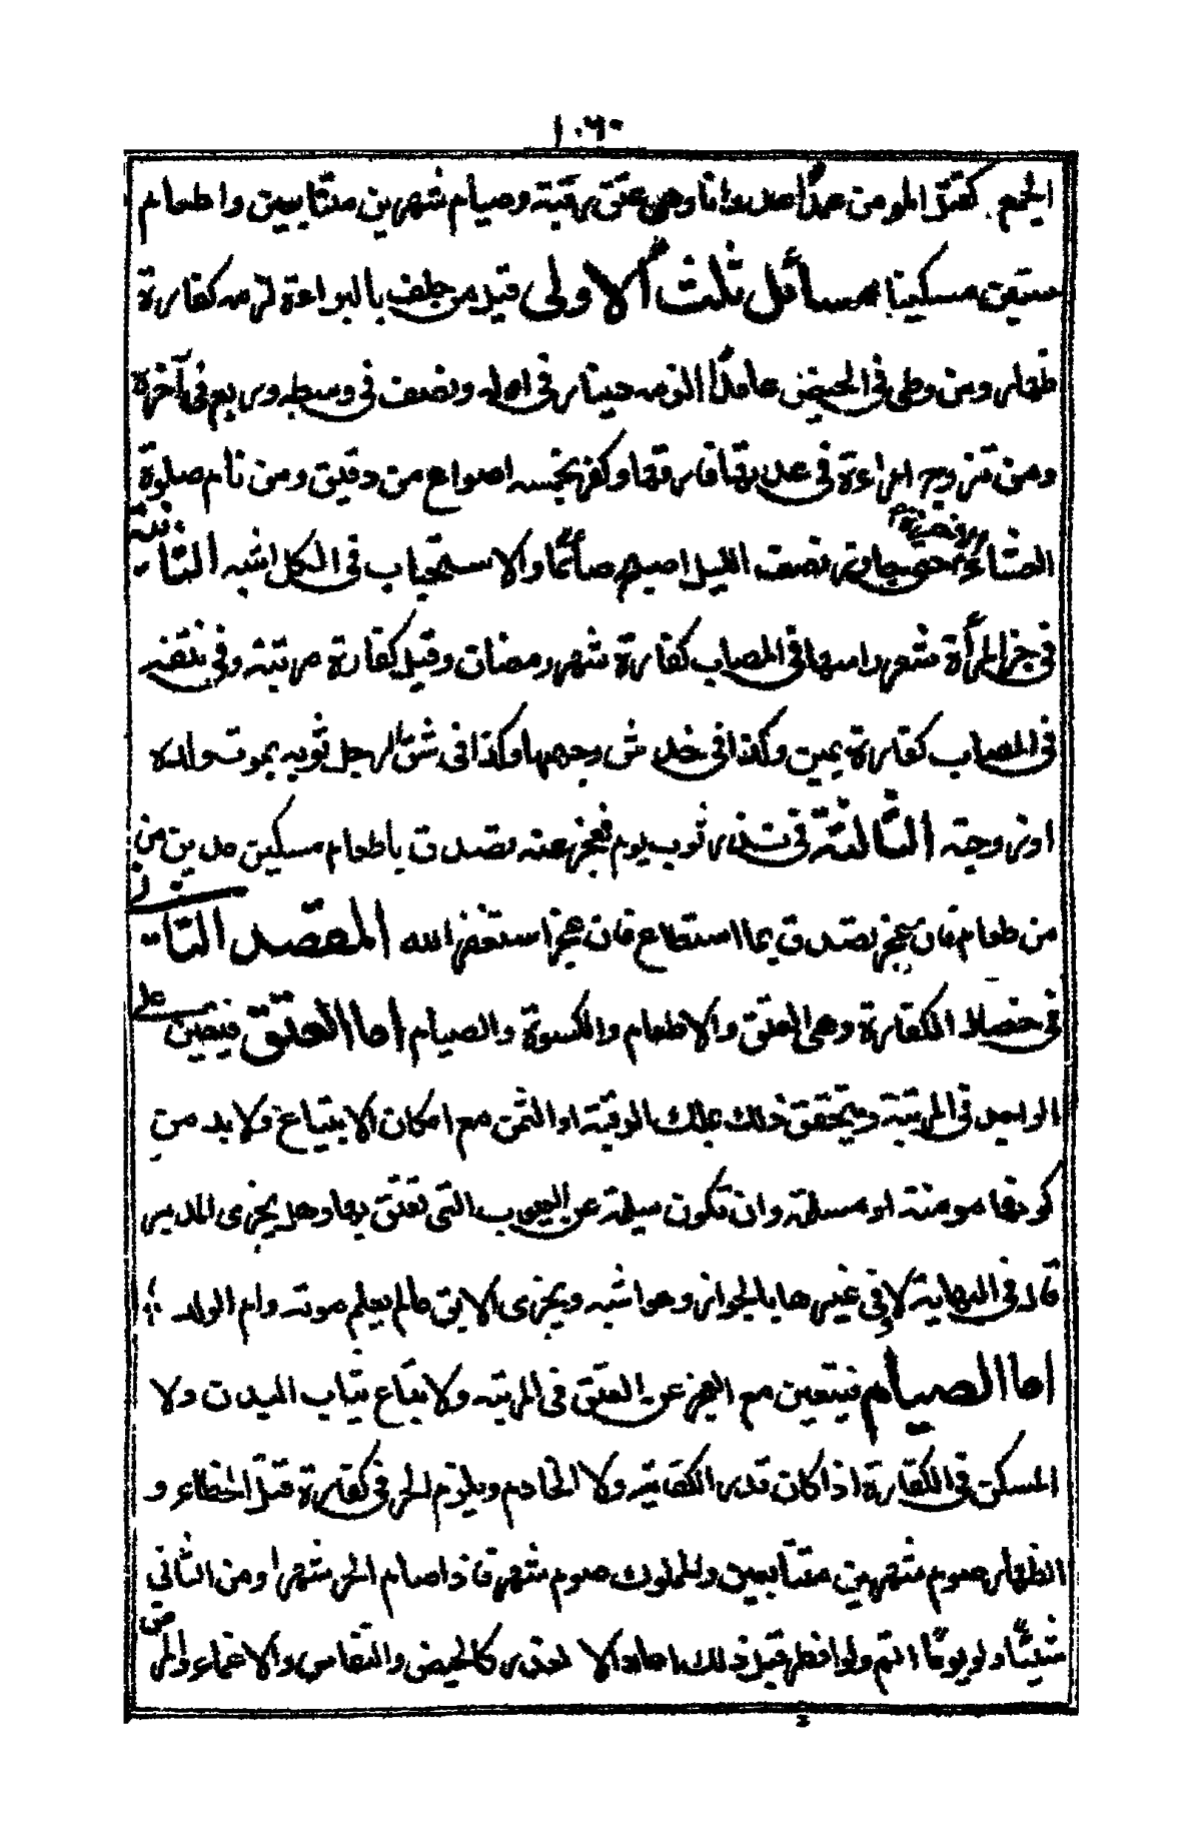 ١٠٦٠
الجمع كقتل المومن عمدًا عدوانا وهى عتق رقبة وصيام شهرين متتابعين واطعام
ستين مسكينا مسائل ثلث الاولى قيل من حلف بالبراءة لزمه كفارة
ظهار ومن وطى فى الحيض عامدًا الزمه دينار فى اوله ونصف فى وسطه وربع فى آخرة
ومن تزوج امراءة فى عدتها فارقها وكفر بخمسه اصواع من دقيق ومن نام صلوة
العشاء حتى يجاوز نصف الليل اصبح صائمًا والاستحباب فى الكل اشبه الثانية
فى جز المرأة شعر راسها فى المصاب كفارة شهر رمضان وقيل كفارة مرتبة وفى نتفه
فى المصاب كفارة يمين وكذا فى خدش وجهها وكذا فى شق الرجل ثوبه بموت ولده
او زوجته الثالثة فى نذر ثوب يوم فعجز عنه تصدق باطعام مسكين مدين من
من طعام فان عجز تصدق بما استطاع فان عجز استغفر الله المقصد الثانى
فى خصال الكفارة وهى العتق والاطعام والكسوة والصيام اما العتق فيتعين على
الواجد فى المرتبة ويتحقق ذلك بملك الرقبة او الثمن مع امكان الابتياع ولا بد من
كونها مومنة او مسلمة وان تكون سليمة عن العيوب التى تعتق بها وهل يجزى المدبر
قال فى النهاية لا وفى غيرها بالجواز وهو اشبه ويجزى الابق مالم يعلم موته وام الولد
اما الصيام فيتعين مع العجز عن العتق فى المرتبة ولا يباع ثياب البدن ولا
المسكن فى الكفارة اذا كان قدر الكفاية ولا الخادم ويلزم الحر فى كفارة قتل الخطاء و
الظهار صوم شهرين متتابعين والمملوك صوم شهر فاذا صام الحر شهرا ومن الثانى
شيئًا ولو يومًا اتم ولو افطر قبل ذلك اعاد الا لعذر كالحيض والنفاس والاغماء والمرض